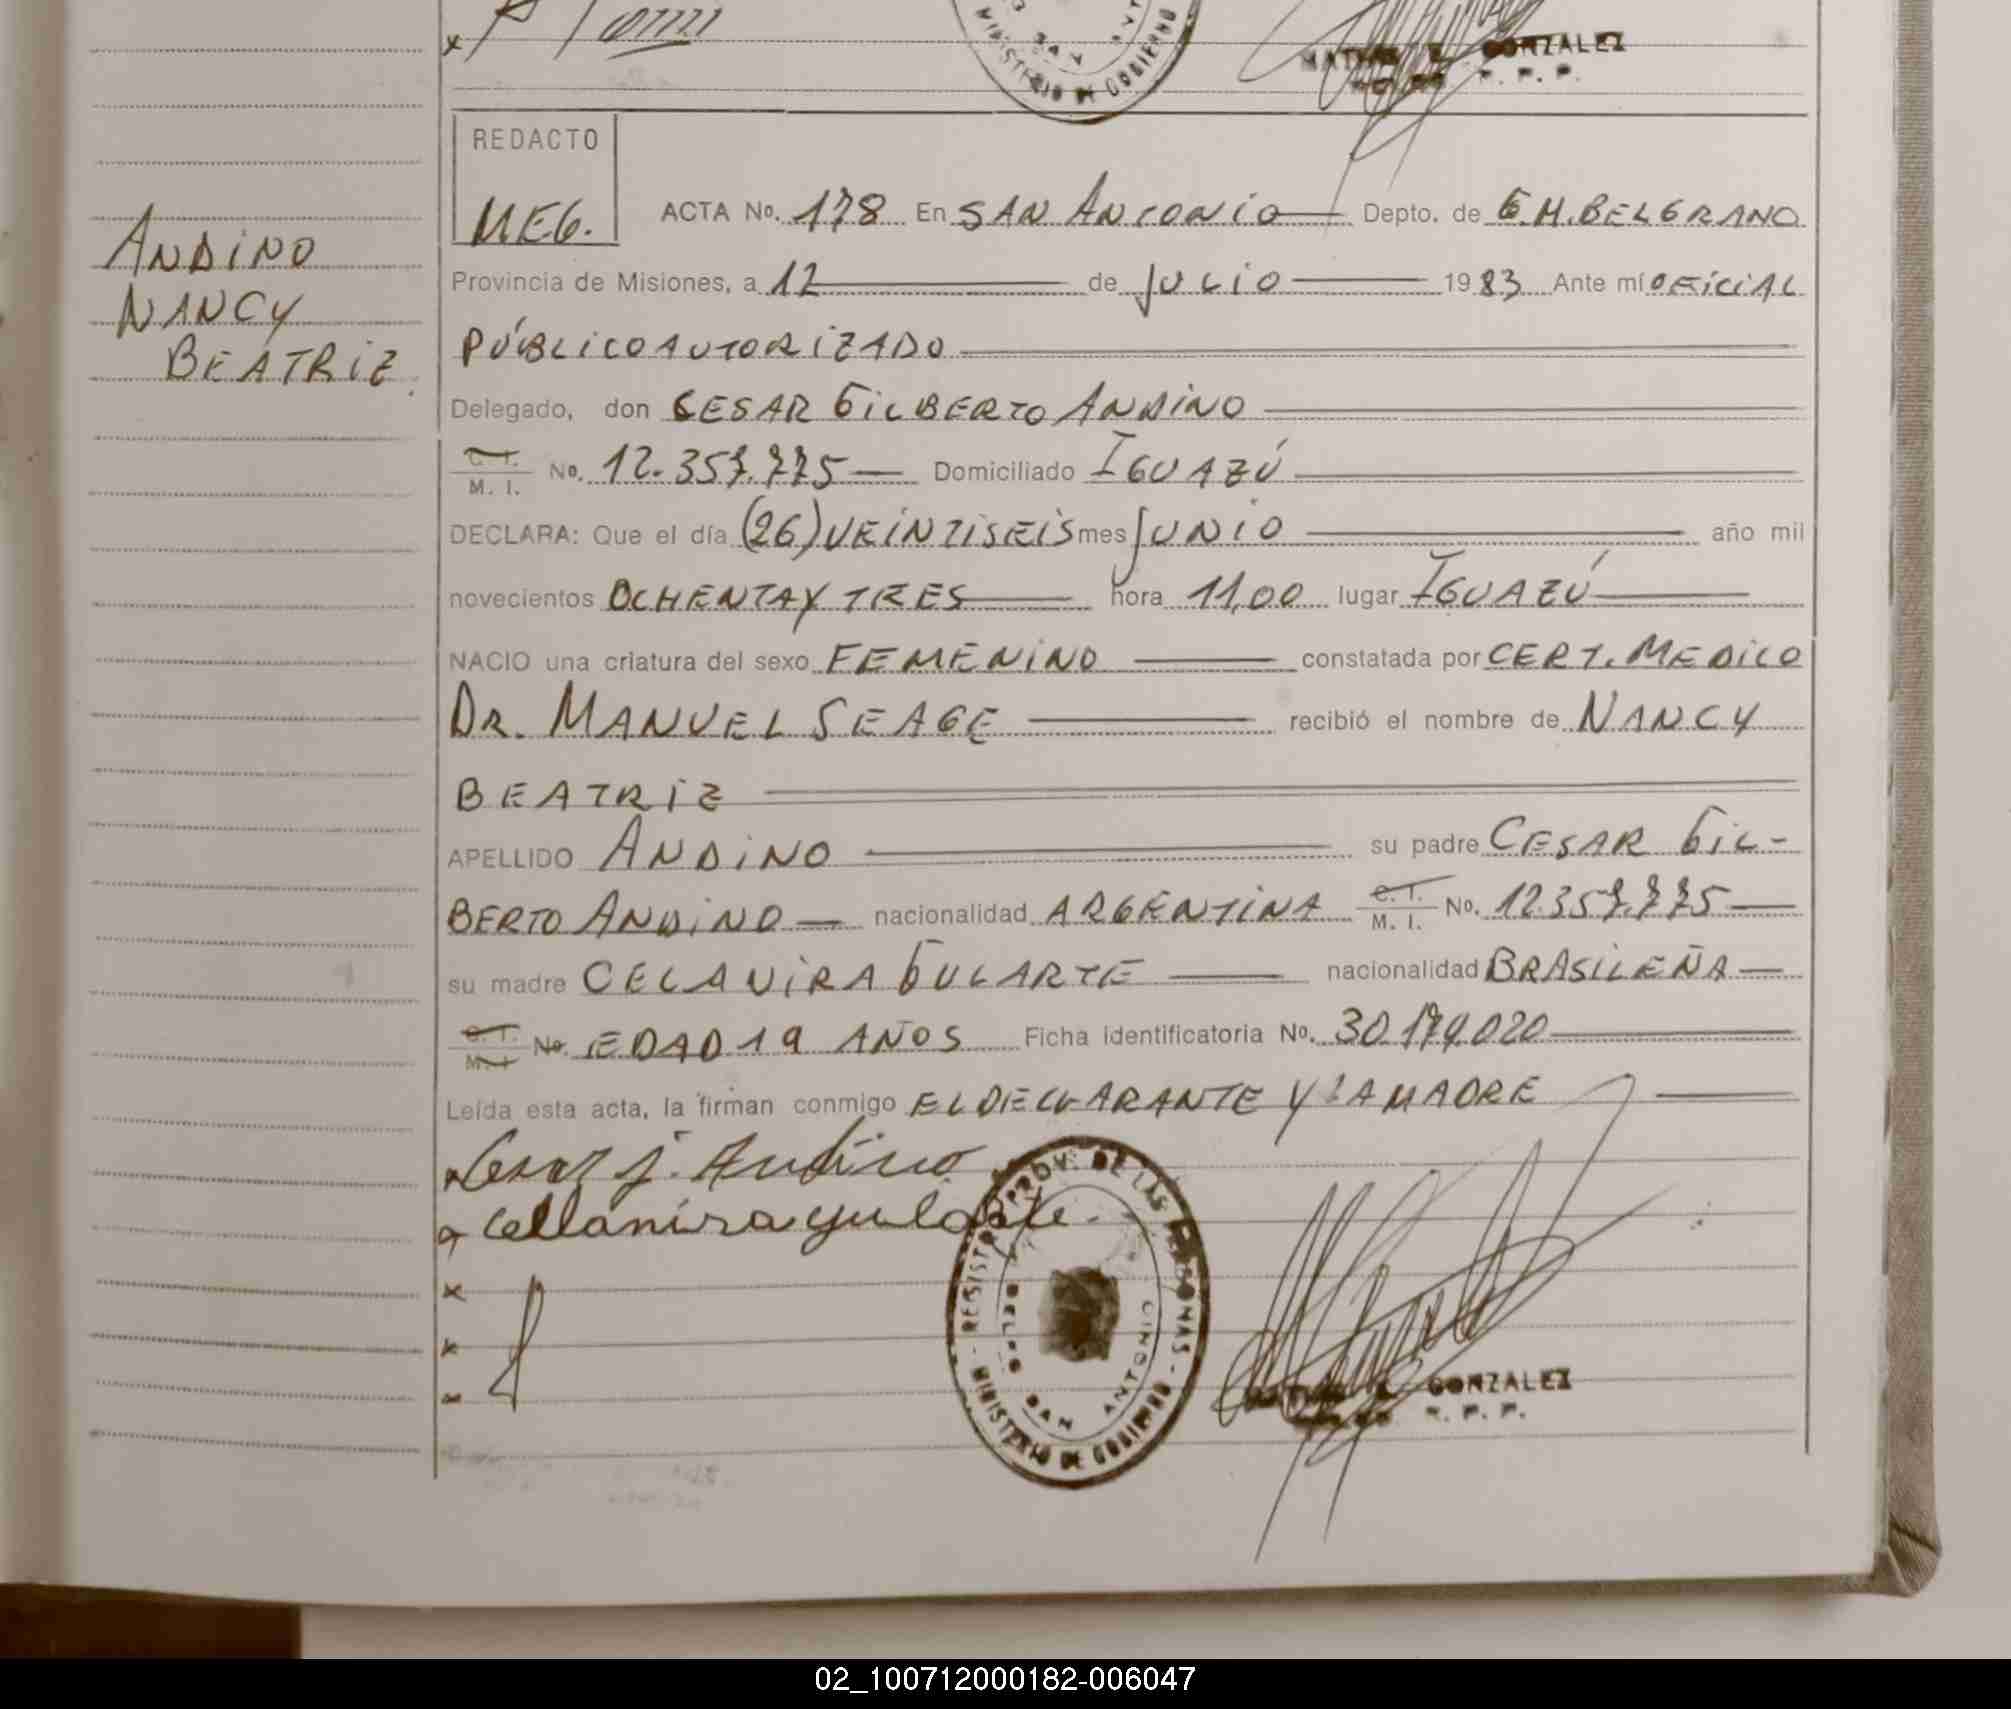 MINISTERIO DE GOBIERNO
SAN
GONZALEZ
R. P. P.
REDACTO
MEG.
ANDINO
NANCY
BEATRIZ.
ACTA No. 178 En SAN ANTONIO Depto. de G.M.BELGRANO
Provincia de Misiones, a 12 de JULIO 1983 Ante mí OFICIAL
PÚBLICO AUTORIZADO
Delegado, don CESAR GILBERTO ANDINO
C. I.
M. I. No. 12.357.775 Domiciliado IGUAZÚ
DECLARA: Que el día (26) VEINTISEIS mes JUNIO año mil
novecientos OCHENTA Y TRES hora 11,00 lugar IGUAZÚ
NACIO una criatura del sexo FEMENINO constatada por CERT. MEDICO
DR. MANUEL SEAGE recibió el nombre de NANCY
BEATRIZ
APELLIDO ANDINO su padre CESAR GIL-
BERTO ANDINO nacionalidad ARGENTINA C. I. M. I. No. 12.357.775
su madre CELANIRA GULARTE nacionalidad BRASILEÑA
C. I. M. I. No. EDAD 19 AÑOS Ficha identificatoria No. 30.179.020
Leída esta acta, la firman conmigo EL DECLARANTE Y LA MADRE
Cesar g. Andino
Cellanira gularte.
REGISTRO PROV. DE LAS PERSONAS
SAN ANTONIO
MINISTERIO DE GOBIERNO
GONZALEZ
R. P. P.
02_100712000182-006047